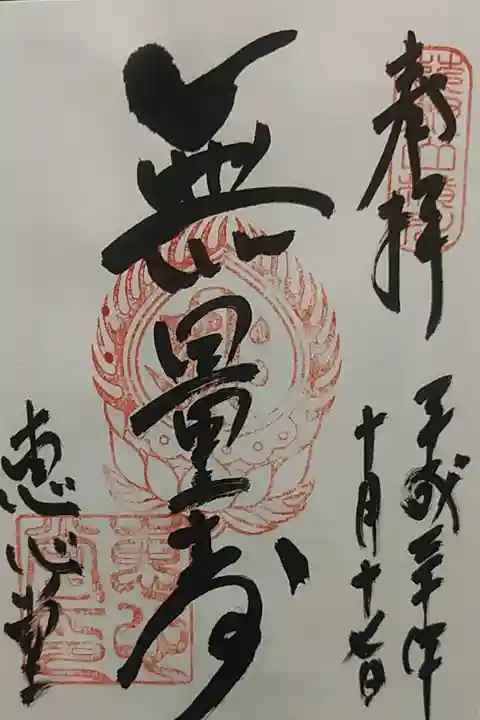 奉拝
平成三十年
十月十七日
無量寿
恵心堂